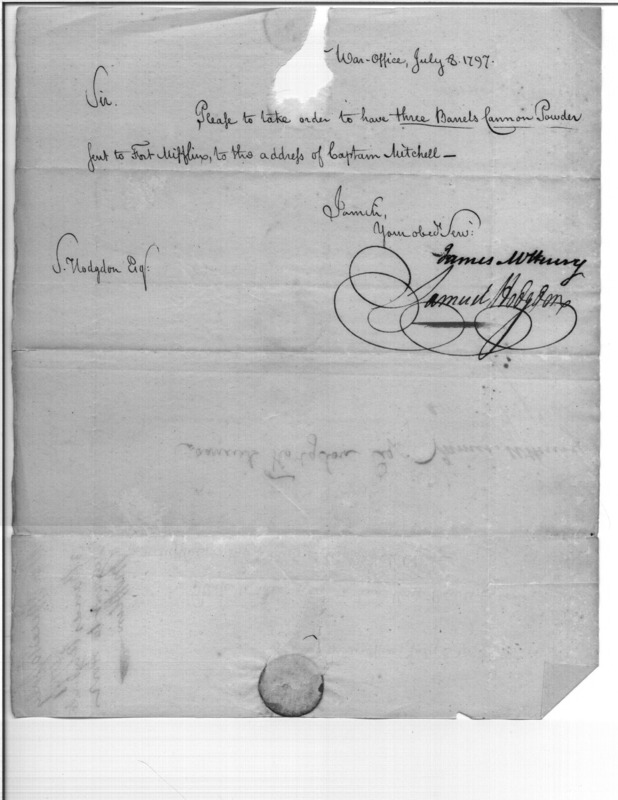 War-Office, July 8. 1797.
Sir.
Please to take order to have three Barrels Cannon Powder
sent to Fort Mifflin, to the address of Captain Mitchell—
I am Sir,
Your obed. Serv:
James McHenry
S. Hodgdon Esq:
Samuel Hodgdon